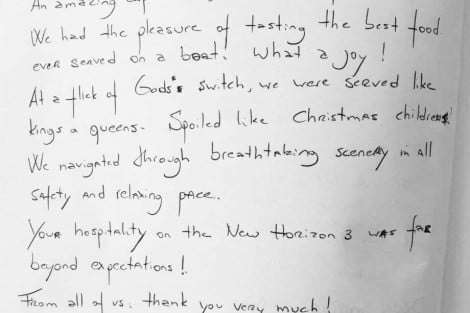 An amazing
We had the pleasure of tasting the best food
ever served on a boat! What a joy!
At a flick of Gods's switch, we were served like
kings & queens. Spoiled like Christmas children!
We navigated through breathtaking scenery in all
safety and relaxing pace.
Your hospitality on the New Horizon 3 was far
beyond expectations!
From all of us: thank you very much!